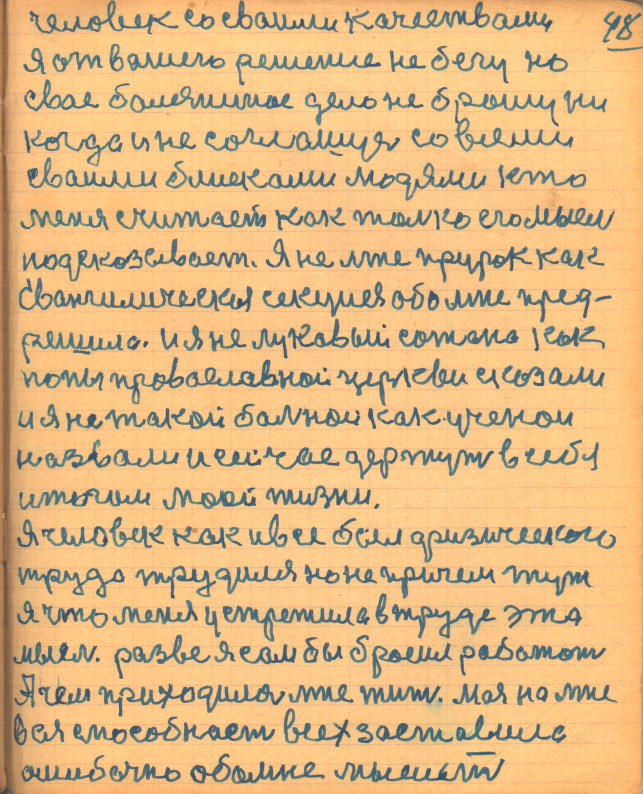 человек со своими качествами 48
Я от вашего решение не бегу но
свае болезниное дело не брошу ни
когда и не соглашуся со всеми
своими близками людями кто
меня считает как толко его мысл
подсказывает. Я не лже пророк как
Евангилическая секция обо мне пред-
решила. И я не лукавый сотона как
попы провославной церкви сказали
и я не такой болной как ученои
назвали и сейчас держут в себя
итогом моей жизни.
Я человек как и все был физического
трудо трудился но не причем тут
я что меня устретила в труде эта
мысл. разве я сам бы бросил работат
А чем приходилос мне жит. Моя на мне
вся способност всех заставила
ошибочно обо мне мыслит